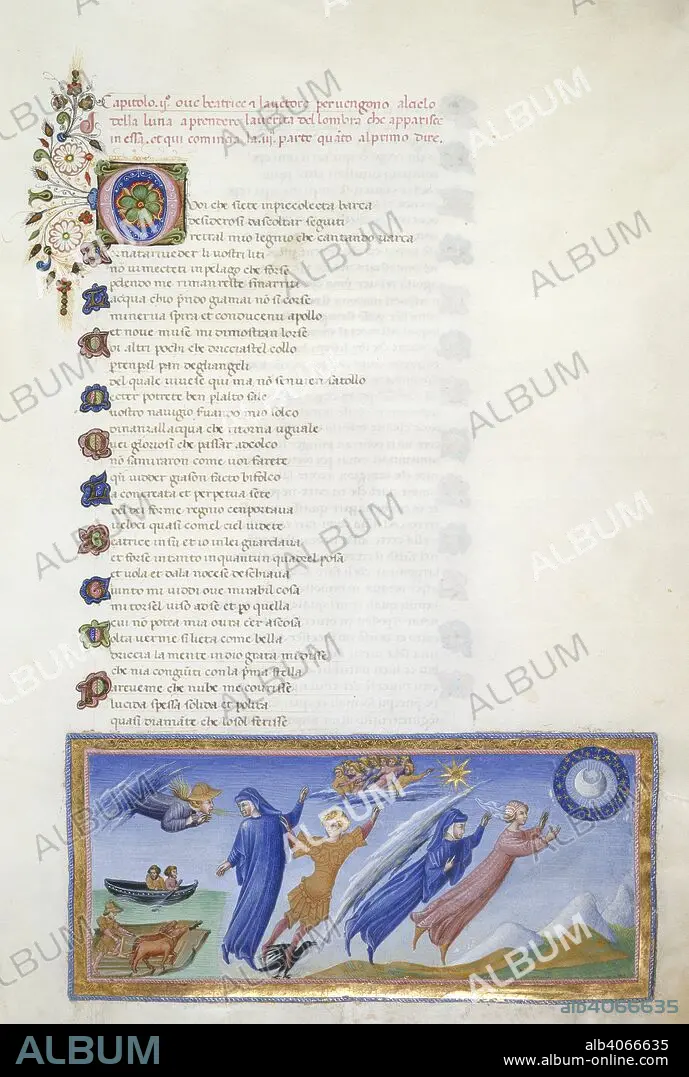 Capitolo .ijo. oue beatrice & lauctore peruengono al cielo
della luna aprendere la uerita del lombra che apparisce
in essa. et qui comincia la .iij. parte quāto al primo dire.
O Voi che siete in piccioletta barca
desiderosi dascoltar seguiti
retral mio legnio che cantando uarca
Tornata riueder li uostri liti
nō ui mectete in pelago che forse
pdendo me rimarreste smarriti
Lacqua chio pndo giamai nō si corse
minerua spira et conducemi apollo
et noue muse mi dimostran lorse
Voi altri pochi che drizzastel collo
ptempal pan degliangeli
del quale uiuese qui ma nō sen uien satollo
Metter potete ben plalto sale
uostro nauigio seruando mio solco
dinanzallacqua che ritorna uguale
Quei gloriosi che passar adcolco
nō samiraron come uoi farete
qn uidder giason facto bifolco
La concreata et perpetua sete
del dei forme regnio cen portaua
ueloci quasi comel ciel uedete
Beatrice in su et io in lei guardaua
et forse in tanto in quantun quadrel posa
et uola et dala noce se deschiaua
Giunto mi uiddi oue mirabil cosa
mi torsel uiso adse et po quella
cui nō potea mia oura eēr ascosa
Volta uer me si lieta come bella
drizza la mente in dio grata mi disse
che nia congiūti con la pma stella
Pareueme che nube ne coprisse
lucida spessa solida et polita
quasi diamāte che lo sol ferisse
ALBUM
alb4066635
ALBUM
alb4066635
www.album-online.com